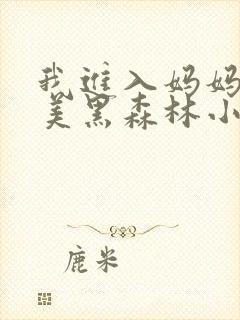 我进入妈妈
美黑森林小
鹿米